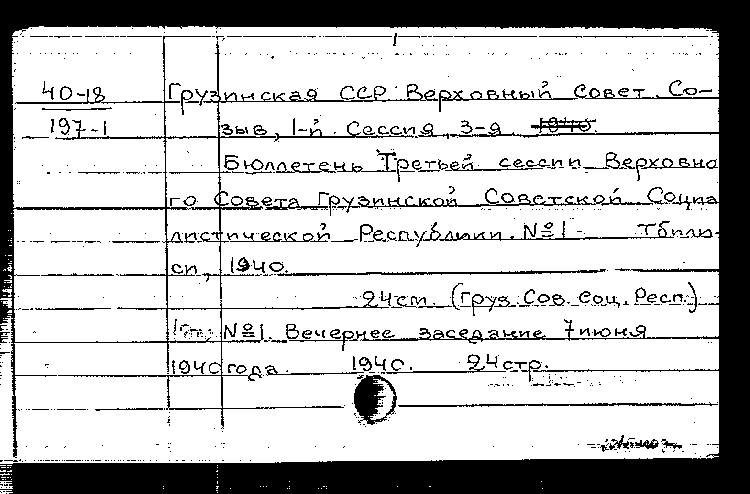 1
40-18 Грузинская ССР. Верховный Совет. Со-
197-1 зыв, 1-й. Сессия, 3-я. 1940.
Бюллетень Третьей сессии Верховно
го Совета Грузинской Советской Социа
листической Республики. №1- Тбили-
си, 1940.
24см. (Груз. Сов. Соц. Респ.)
№1. Вечернее заседание 7 июня
1940 года. 1940. 24 стр.